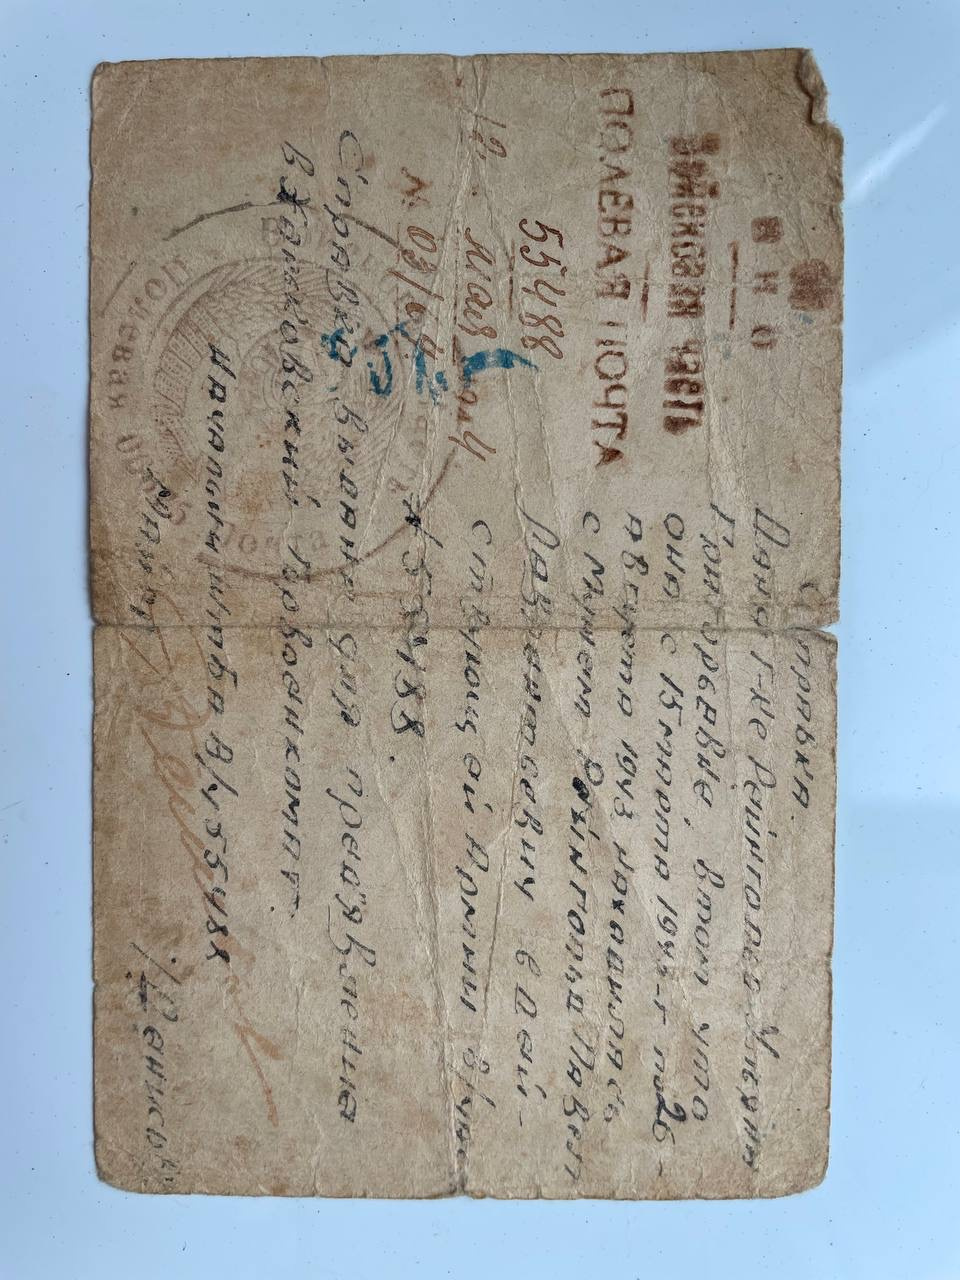 Н К О
ВОИНСКАЯ ЧАСТЬ
ПОЛЕВАЯ ПОЧТА
55488
12. Мая
№ 03/
Справка.
Дана г-не Рейнгольд
Григорьевне, в том что
она с 15 марта 1943 г по 26
августа 1943 находилась
с мужем Рейнгольд Павел
Лаврентьевич в дей-
ствующей Армии в/ча
№ 55488.
Справка выдана для пред'явления
в Харьковский горвоенкомат.
Нач. штаба в/ч 55488
Майор
/Денисов/
Полевая Почта